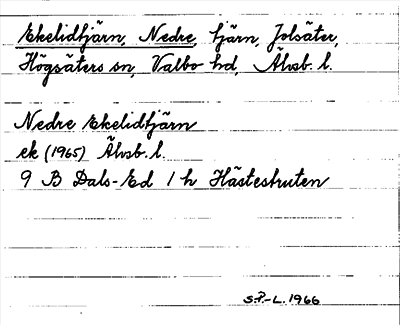 Ekelidtjärn, Nedre, tjärn, Jolsäter,
Högsäters sn, Valbo hd, Älvsb. l.
Nedre Ekelidtjärn
ek (1965) Älvsb. l.
9 B Dals-Ed 1 h Hästestruten
S.P.-L. 1966